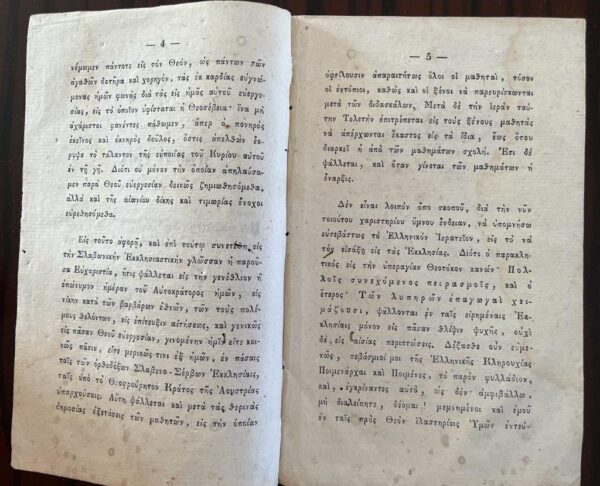 — 4 —
νέμωμεν πάντοτε εἰς τὸν Θεόν, ὡς πάντων τῶν
ἀγαθῶν δοτῆρα καὶ χορηγόν, τὰς ἐκ καρδίας εὐγνώ-
μονας ἡμῶν φωνὰς διὰ τὰς εἰς ἡμᾶς αὐτοῦ εὐεργε-
σίας, εἰς τὸ ὁποῖον ὑφίσταται ἡ Θεοσέβεια· ἵνα μὴ
ἀχάριστοι φανέντες πάθωμεν, ἅπερ ὁ πονηρὸς
ἐκεῖνος καὶ ὀκνηρὸς δοῦλος, ὅστις ἀπελθὼν ἔκ-
ρυψε τὸ τάλαντον τῆς εὐποιΐας τοῦ Κυρίου αὐτοῦ
ἐν τῇ γῇ. Διότι οὐ μόνον τὴν ὁποίαν ἀπηλαύσα-
μεν παρὰ Θεοῦ εὐεργεσίαν δεινῶς ζημιωθησόμεθα,
ἀλλὰ καὶ τῆς αἰωνίου δίκης καὶ τιμωρίας ἔνοχοι
εὑρεθησόμεθα.
Εἰς τοῦτο ἀφορᾷ, καὶ ἐπὶ τούτῳ συνετέθη, εἰς
τὴν Σλαβωνικὴν Ἐκκλησιαστικὴν γλῶσσαν ἡ παροῦ-
σα Εὐχαριστία, ἥτις ψάλλεται εἰς τὴν γενέθλιον ἢ
ἐπώνυμον ἡμέραν τοῦ Αὐτοκράτορος ἡμῶν, εἰς
νίκην κατὰ τῶν βαρβάρων ἐθνῶν, τῶν τοὺς πολέ-
μους θελόντων, εἰς ἐπίτευξιν αἰτήσεως, καὶ γενικῶς
εἰς πᾶσαν Θεοῦ εὐεργεσίαν, γινομένην ἡμῖν εἴτε κοι-
νῶς πᾶσιν, εἴτε μερικῶς τινι ἐξ ἡμῶν, ἐν πάσαις
ταῖς τῶν ὀρθοδόξων Σλαβενο-Σέρβων Ἐκκλησίαις,
ταῖς ὑπὸ τὸ Θεοφρούρητον Κράτος τῆς Ἀουστρίας
ὑπαρχούσαις. Αὕτη ψάλλεται καὶ μετὰ τὰς θερινὰς
δημοσίας ἐξετάσεις τῶν μαθητῶν, εἰς τὴν ὁποίαν
— 5 —
ὀφείλουσιν ἀπαραιτήτως ὅλοι οἱ μαθηταί, τόσον
οἱ ἐντόπιοι, καθὼς καὶ οἱ ξένοι νὰ παρευρίσκωνται
μετὰ τῶν διδασκάλων, Μετὰ δὲ τὴν ἱερὰν ταύ-
την Τελετὴν ἐπιτρέπεται εἰς τοὺς ξένους μαθητὰς
νὰ ἀπέρχωνται ἕκαστος εἰς τὰ ἴδια, ἕως ὅτου
διαρκεῖ ἡ ἀπὸ τῶν μαθημάτων σχολή. Ἔτι δὲ
ψάλλεται, καὶ ὅταν γίνεται τῶν μαθημάτων ἡ
ἔναρξις.
Δὲν εἶναι λοιπὸν ἀπὸ σκοποῦ, διὰ τὴν νῦν
τοιούτου χαριστηρίου ὕμνου ἔνδειαν, νὰ ὑπομνήσω
εὐσεβάστως τὸ Ἑλληνικὸν Ἱερατεῖον, εἰς τὸ νὰ
τὸν εἰσάξῃ εἰς τὰς Ἐκκλησίας. Διότι ὁ παρακλη-
τικὸς εἰς τὴν ὑπεραγίαν Θεοτόκον κανών· Πολ-
λοῖς συνεχόμενος πειρασμοῖς, καὶ ὁ
ἕτερος· Τῶν λυπηρῶν ἐπαγωγαὶ χει-
μάζουσι, ψάλλονται ἐν ταῖς εἰρημέναις Ἐκ-
κλησίαις μόνον εἰς πᾶσαν θλίψιν ψυχῆς, οὐχὶ
δὲ, εἰς αἰσίας περιπτώσεις. Δέξασθε οὖν εὐμε-
νῶς, σεβάσμιοί μοι τῆς Ἑλληνικῆς Κληρουχίας
Ποιμενάρχαι καὶ Ποιμένες, τὸ παρὸν φυλλάδιον,
καὶ, ἐγκρίναντες αὐτό, ὡς δὲν ἀμφιβάλλω,
μὴ διαλείπητε, δέομαι! μεμνημένοι καὶ ἐμοῦ
ἐν ταῖς πρὸς Θεὸν ἱλαστηρίοις Ὑμῶν ἐντεύ-